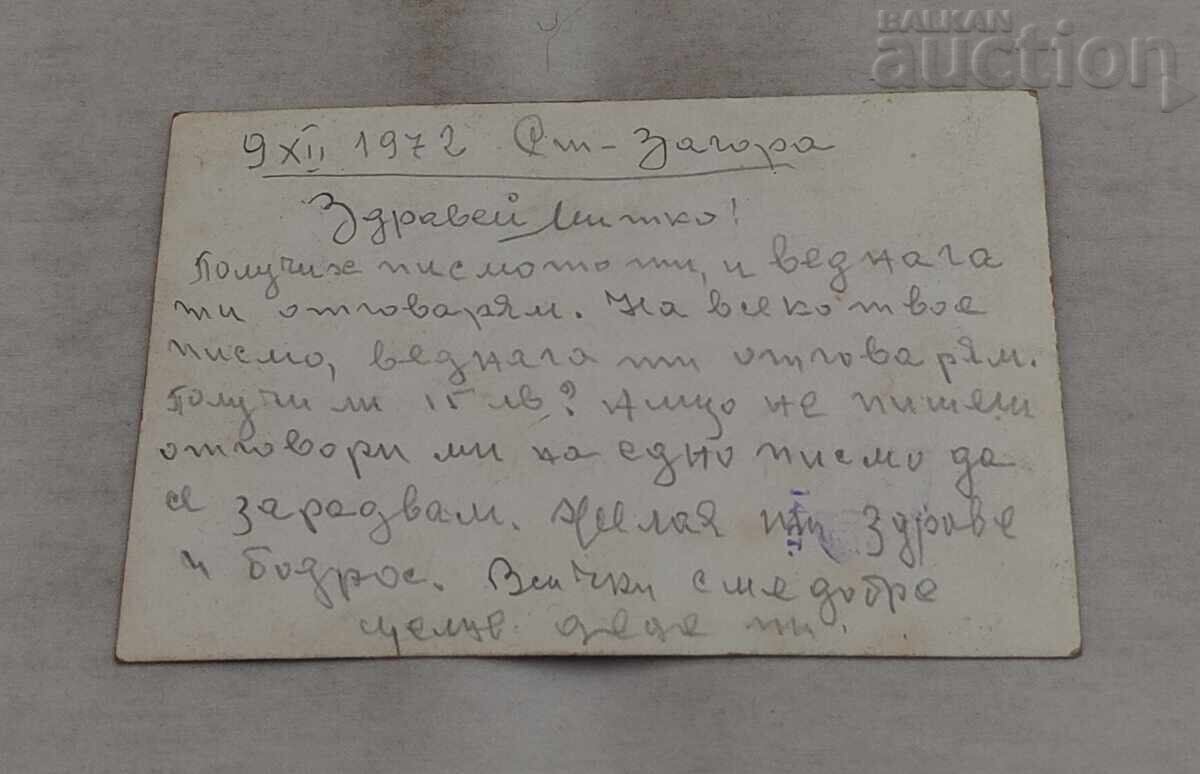 BALKAN
auction
9 XII 1972 Ст-Загора
Здравей Митко!
Получих писмото ти, и веднага
ти отговарям. На всеко твое
писмо, веднага ти отговарям.
Получи ли 15 лв? Ащо не пишеш
отговори ми на едно писмо да
се зарадвам. Желая ти Здраве
и бодрос. Всички сме добре
деде ти.